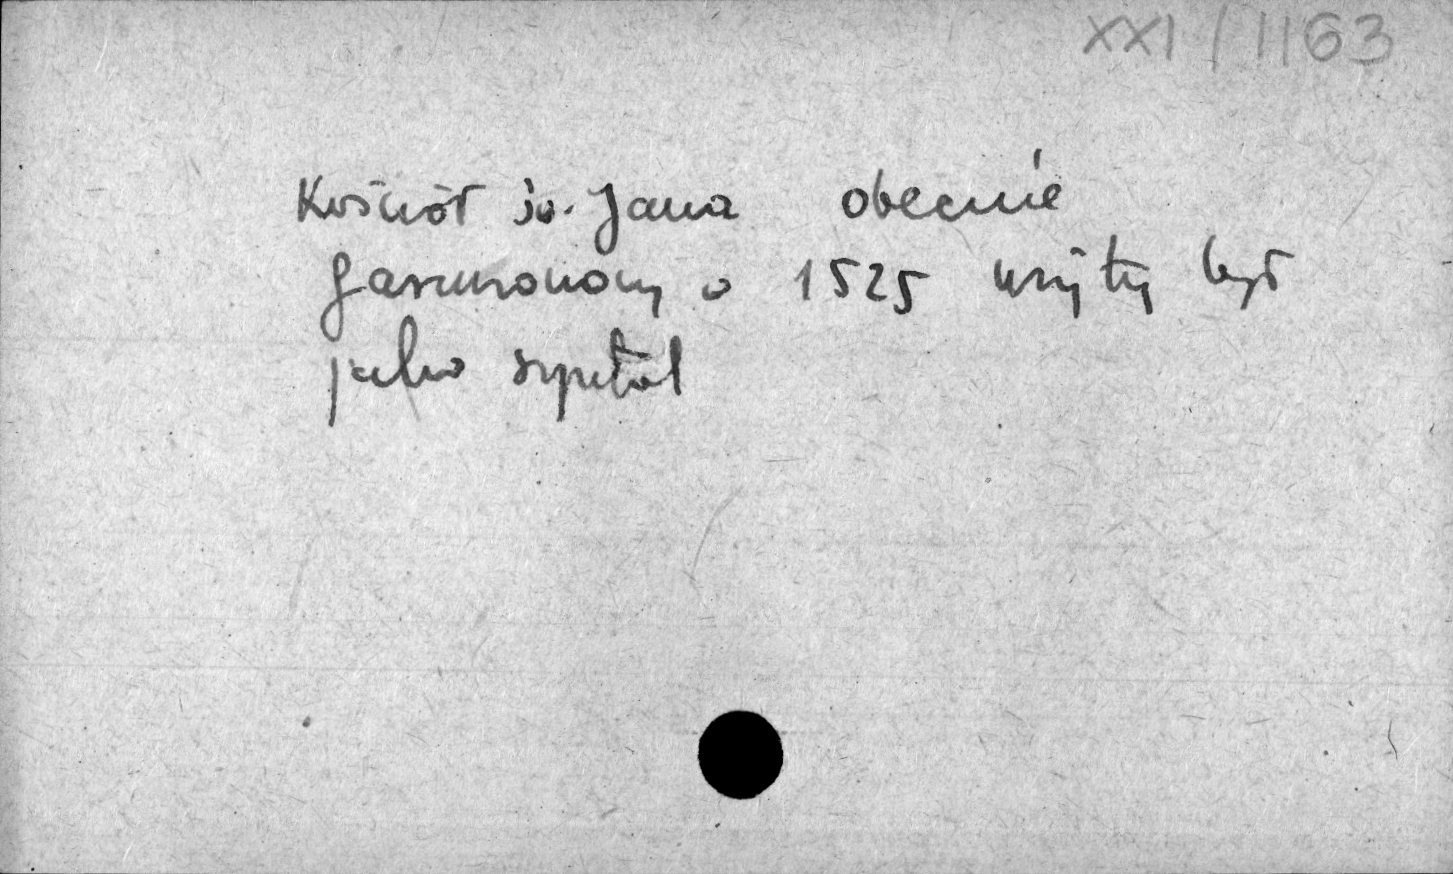 XXI / 1163
Kościół św. Jana obecnie
garnizonowy w 1525 użyty był
jako szpital